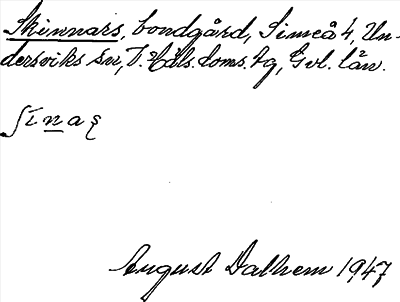 Skinnars, bondgård, Simeå 4, Un-
dersviks sn, V. Häls. doms. tg, Gvl. län.
ʃi̵n̲aʂ
August Dalhem 1947